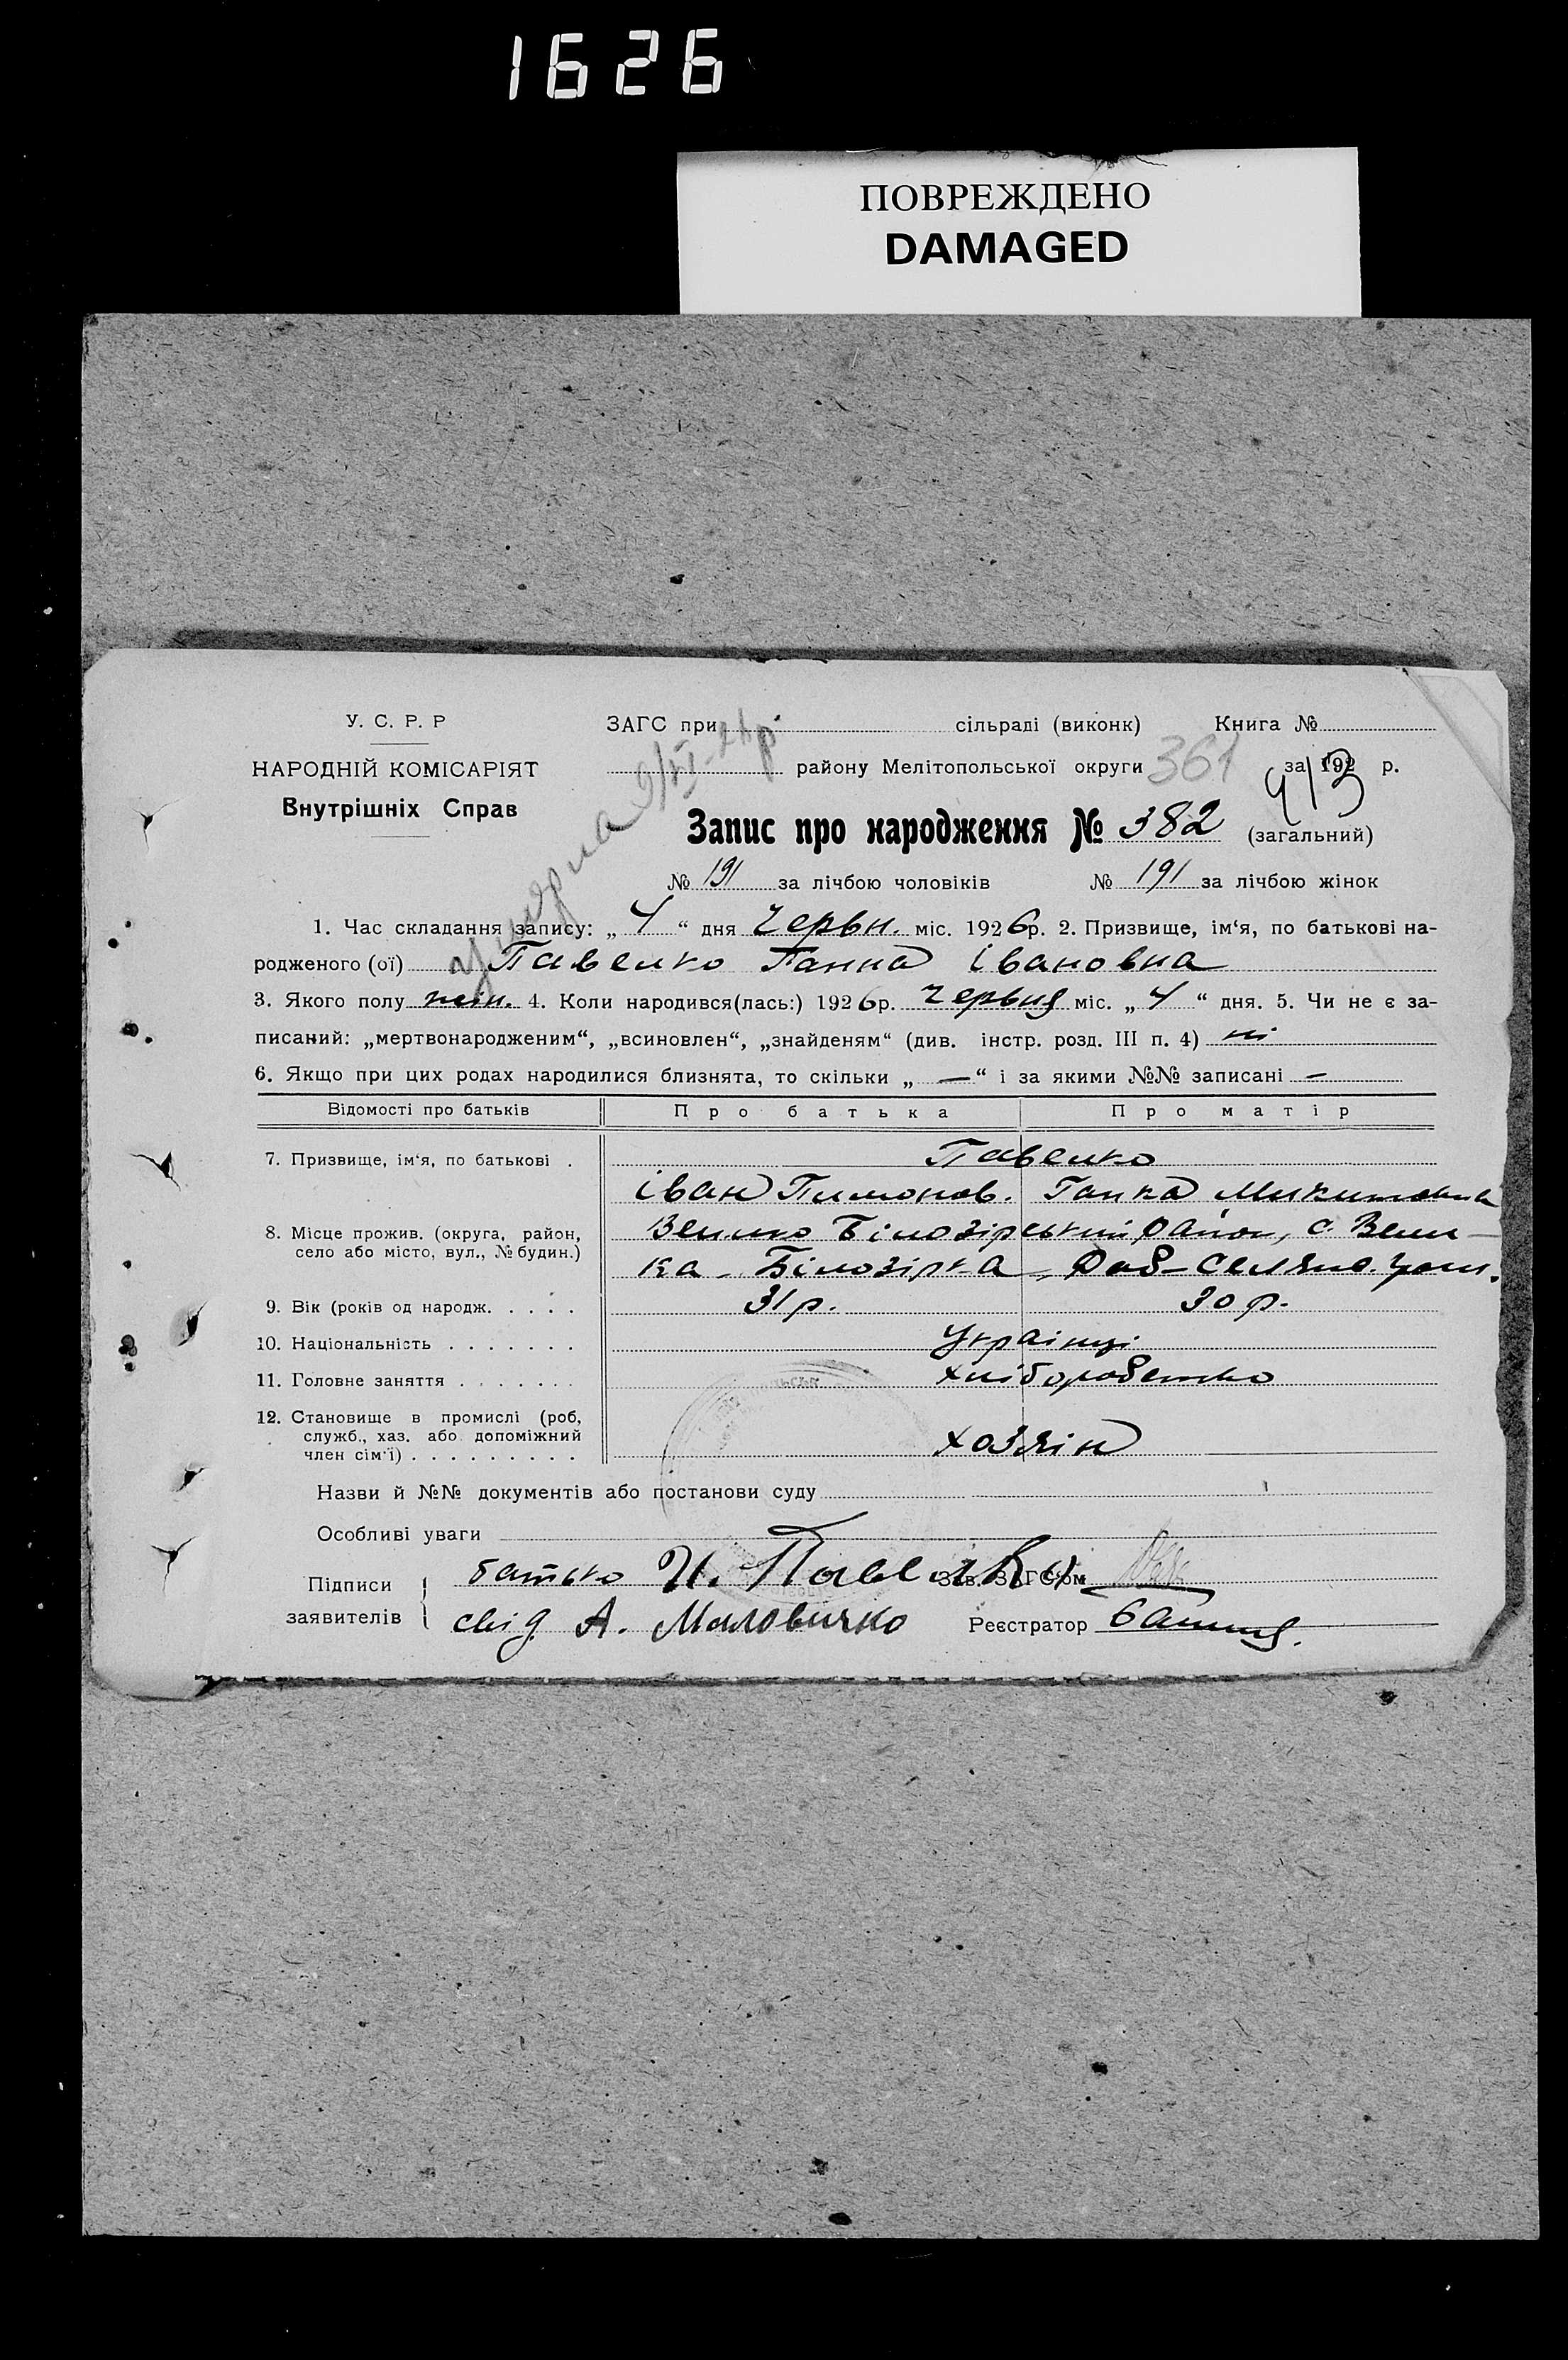 1626
ПОВРЕЖДЕНО
DAMAGED
У. С. Р. Р
ЗАГС при сільраді (виконк) Книга №
НАРОДНІЙ КОМІСАРІЯТ
району Мелітопольської округи 361 за 192 р.
Внутрішніх Справ
413
Запис про народження № 382 (загальний)
№ 191 за лічбою чоловіків № 191 за лічбою жінок
умерла 9/VI-26 р.
1. Час складання запису: „ 4 “ дня Червн. міс. 1926р. 2. Призвище, ім‘я, по батькові на-
родженого (ої) Павенко Ганна Івановна
3. Якого полу жін. 4. Коли народився(лась:) 1926р. Червня міс. „ 4 “ дня. 5. Чи не є за-
писаний: „мертвонародженим“, „всиновлен“, „знайденям“ (див. інстр. розд. III п. 4) ні
6. Якщо при цих родах народилися близнята, то скільки „ — “ і за якими №№ записані —
Відомості про батьків Про батька Про матір
7. Призвище, ім‘я, по батькові . Павенко
Іван Пимонов. Ганна Микитовна
8. Місце прожив. (округа, район, село або місто, вул., № будин.) Велико Білозірський район, с. Вели-
ка-Білозірка,
9. Вік (років од народж. . . . . 31 р. 30 р.
10. Національність . . . . . . . Українці
11. Головне заняття . . . . . . . хліборобство
12. Становище в промислі (роб,
служб., хаз. або допоміжний
член сім‘ї) . . . . . . . . . хозяін
Назви й №№ документів або постанови суду
Особливі уваги
Підписи заявителів батько И. Зав. ЗАГС‘ом
свід. А. Маловичко Реєстратор